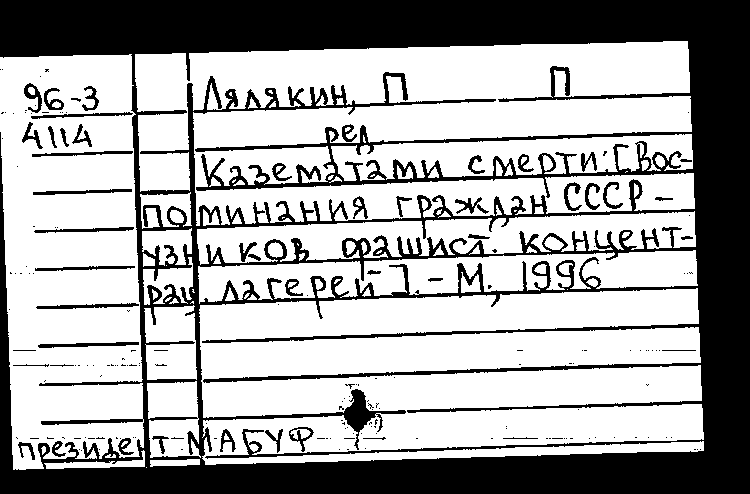 96-3 Лялякин, П П
4114 ред
Казематами смерти: [Вос-
поминания граждан СССР -
узников фашист. концент-
рац. лагерей]. - М., 1996
президент МАБУФ